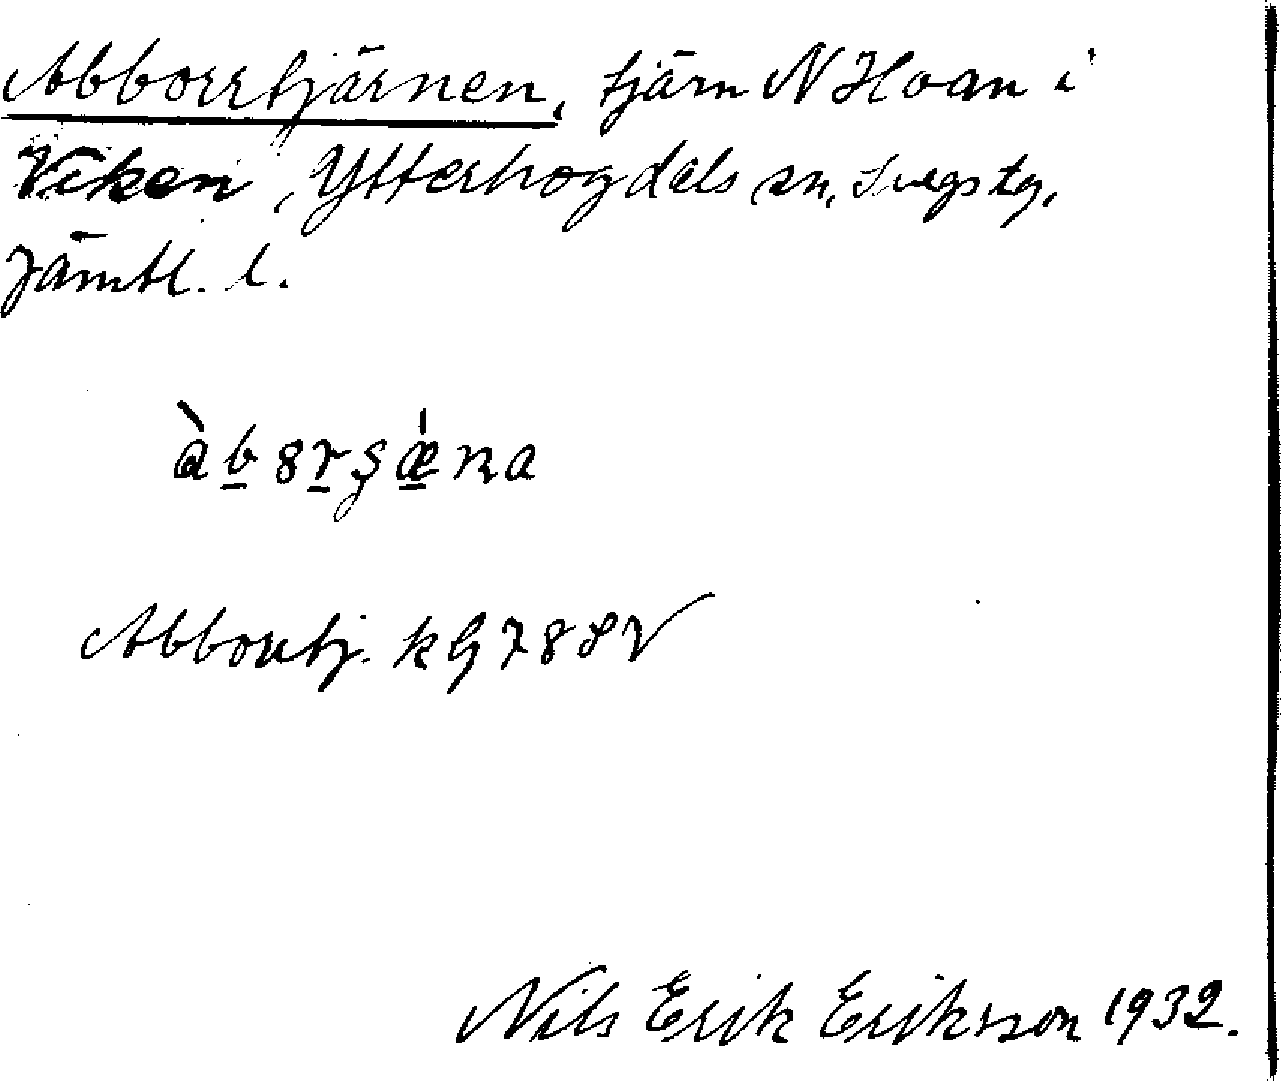 Abborrtjärnen, tjärn N Hoan i
Viken, Ytterhogdals sn, Svegs tg,
Jämtl. l.
Abborrtj. kG 78 SV
Nils Erik Eriksson 1932.